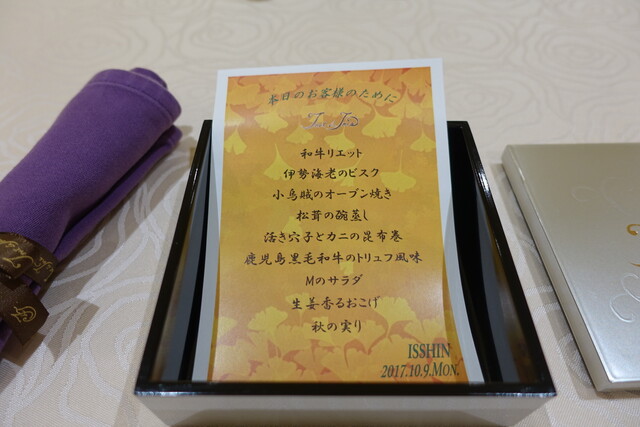 本日のお客様のために
和牛リエット
伊勢海老のビスク
小烏賊のオーブン焼き
松茸の碗蒸し
活き穴子とカニの昆布巻
鹿児島黒毛和牛のトリュフ風味
Mのサラダ
生姜香るおこげ
秋の実り
ISSHIN
2017.10.9.MON.